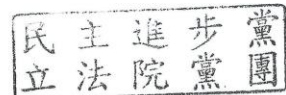 民主進步黨
立法院黨團